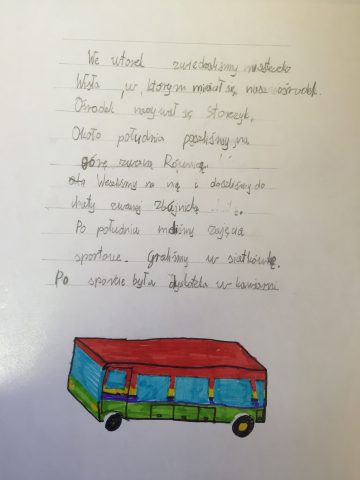 We wtorek zwiedzaliśmy miasteczko
Wisła w którym mieścił się nasz ośrodek.
Ośrodek nazywał się Storczyk.
Około południa poszliśmy na
górę zwaną Równicą.
Weszliśmy na nią i doszliśmy do
chaty zwanej zbójnicką
Po południu mieliśmy zajęcia
sportowe. Graliśmy w siatkówkę.
Po sporcie była dyskoteka w kawiarni